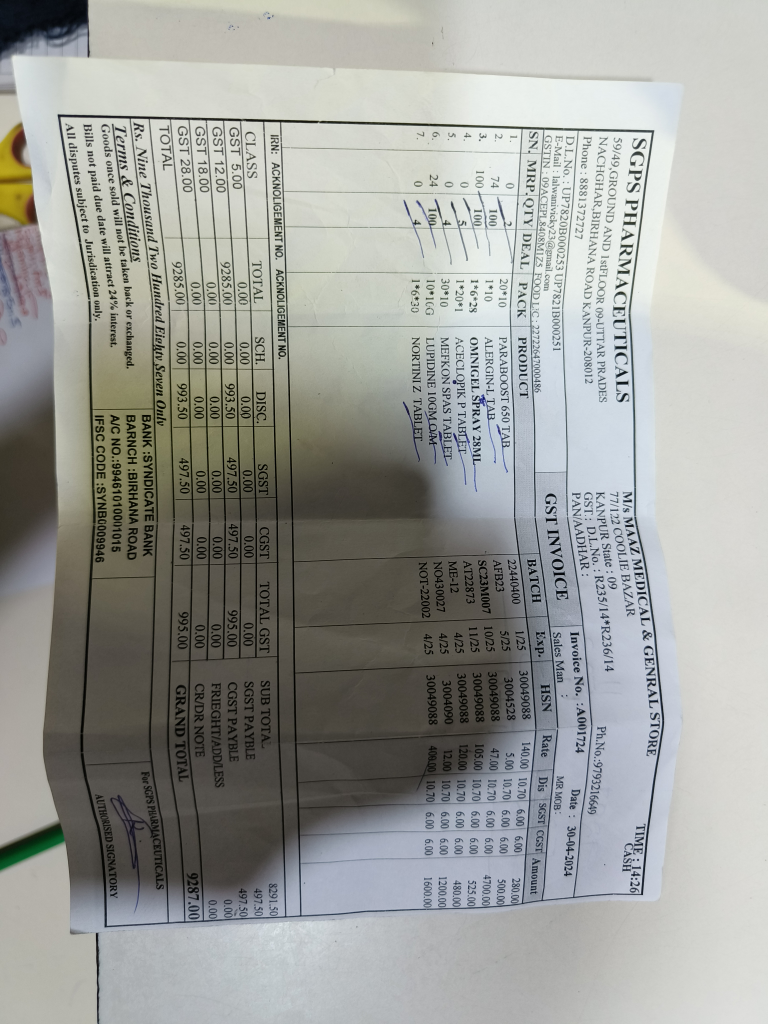 SGPS PHARMACEUTICALS
59/49,GROUND AND 1stFLOOR 09-UTTAR PRADES
NACHGHAR,BIRHANA ROAD KANPUR-208012
Phone : 8881372727
D.L.No. : UP7820B000253 UP7821B000251
E-Mail : lalwanivicky23@gmail.com
GSTIN : 09ACEPL8408M1Z5 FOOD LIC: 22722647000486
M/s MAAZ MEDICAL & GENRAL STORE
77/122 COOLIE BAZAR
KANPUR State : 09
GST: D.L.No. : R235/14*R236/14
PAN/AADHAR :
Ph.No.:9793216649
TIME : 14:26
CASH
GST INVOICE
Invoice No. : A001724 Date : 30-04-2024
Sales Man : MR MOB :
SN. MRP. QTY DEAL PACK PRODUCT BATCH Exp. HSN Rate Dis SGST CGST Amount
1. 0 2 20*10 PARABOOST 650 TAB 22440400 1/25 30049088 140.00 10.70 6.00 6.00 280.00
2. 74 100 1*10 ALERGIN-L TAB AFB23 5/25 3004528 5.00 10.70 6.00 6.00 500.00
3. 100 100 1*6*28 OMNIGEL SPRAY 28ML SC23M007 10/25 30049088 47.00 10.70 6.00 6.00 4700.00
4. 0 5 1*20*1 ACECLOPIK P TABLET AT22873 11/25 30049088 105.00 10.70 6.00 6.00 525.00
5. 0 4 30*10 MEFKON SPAS TABLET ME-12 4/25 30049088 120.00 10.70 6.00 6.00 480.00
6. 24 100 10*10G LUPIDINE 10GM.O/M NO430027 4/25 3004090 12.00 10.70 6.00 6.00 1200.00
7. 0 4 1*6*30 NORTINIZ TABLET NOT-22002 4/25 30049088 400.00 10.70 6.00 6.00 1600.00
IRN: ACKNOLIGEMENT NO. ACKNOLIGEMENT NO.
CLASS TOTAL SCH. DISC. SGST CGST TOTAL GST
GST 5.00 0.00 0.00 0.00 0.00 0.00 0.00
GST 12.00 9285.00 0.00 993.50 497.50 497.50 995.00
GST 18.00 0.00 0.00 0.00 0.00 0.00 0.00
GST 28.00 0.00 0.00 0.00 0.00 0.00 0.00
TOTAL 9285.00 0.00 993.50 497.50 497.50 995.00
SUB TOTAL 8291.50
SGST PAYBLE 497.50
CGST PAYBLE 497.50
FRIEGHT/ADD/LESS 0.00
CR/DR NOTE 0.00
GRAND TOTAL 9287.00
Rs. Nine Thousand Two Hundred Eighty Seven Only
Terms & Conditions
Goods once sold will not be taken back or exchanged.
Bills not paid due date will attract 24% interest.
All disputes subject to Jurisdication only.
BANK :SYNDICATE BANK
BARNCH :BIRHANA ROAD
A/C NO.:99461010011015
IFSC CODE :SYNB0009946
For SGPS PHARMACEUTICALS
AUTHORISED SIGNATORY